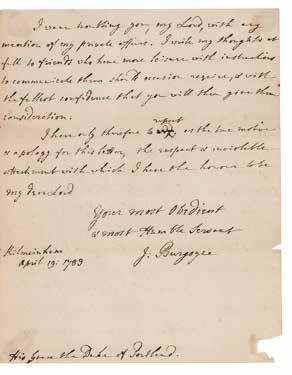 I was troubling you, my Lord, with any
mention of my private affairs. I wish my thoughts at
full to friends who have more leisure with instructions
to communicate them should occasion require, & with
the fullest confidence that you will then give them
consideration.
I have only therefore to repeat as the true motive
& apology for this letter, the respect & inviolable
attachment with which I have the honour to be
my Dear Lord
Your most Obedient
& most Humble Servant
J: Burgoyne
Kilmainham
April 19: 1783
His Grace the Duke of Portland.